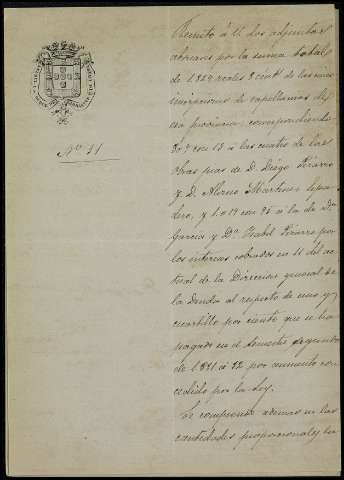 Nº 11
Remito á U. dos adjuntos
abonares por la suma total
de 1.824 reales 8 cent. de las
inscripciones de capellanias de
esa provincia, correspondiendo
con 13 á las cuatro de las
obras pias de D. Diego Pizarro
y D. Alonso Martinez
y con 95 á la de Dª
Garcia y Dª Isabel Pizarro por
los intereses cobrados en 11 del ac
tual de la Direccion general de
la Deuda al respecto de uno y
cuartillo por ciento que se ha
pagado en el semestre segundo
de 1881 á 82 por aumento con
cedido por la Ley.
Se comprende ademas en las
cantidades proporcionales